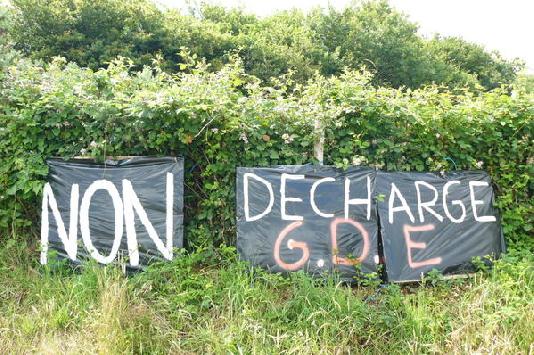 NON DECHARGE
G.D.E